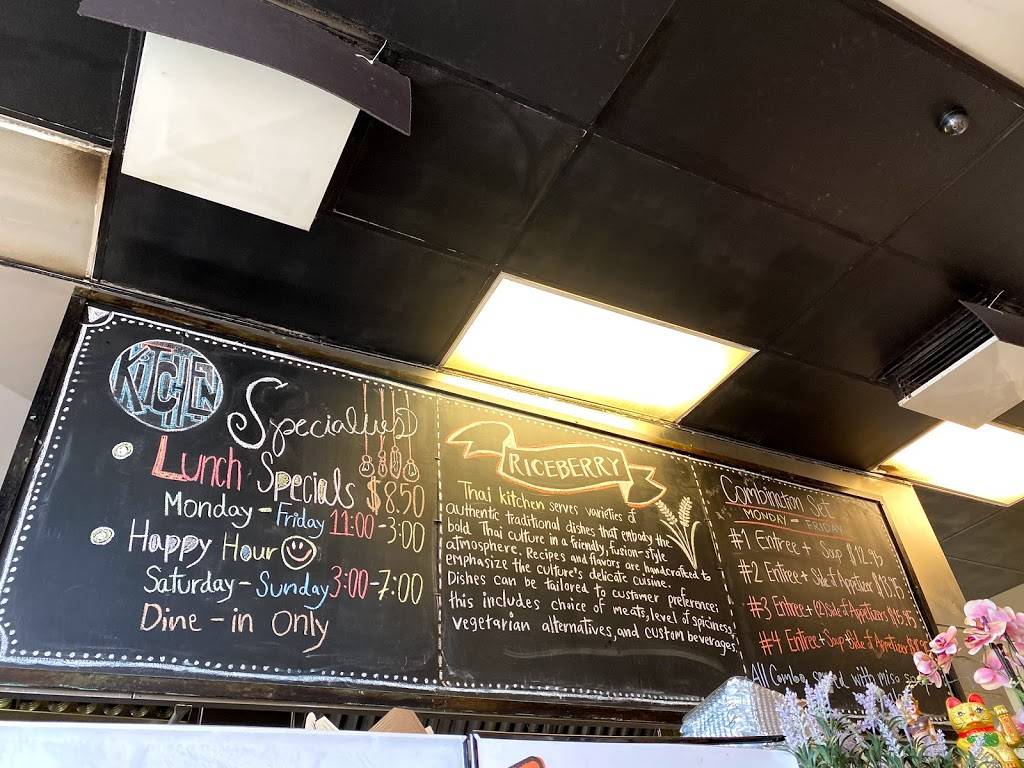 KITCHEN
Specialties
Lunch Specials $8.50
Monday - Friday 11:00 - 3:00
Happy Hour
Saturday - Sunday 3:00 - 7:00
Dine - in Only
RICEBERRY
Thai kitchen serves varieties of
authentic traditional dishes that embody the
bold Thai culture in a friendly, fusion-style
atmosphere. Recipes and flavors are handcrafted to
emphasize the culture's delicate cuisine.
Dishes can be tailored to customer preference;
this includes choice of meats, level of spiciness,
vegetarian alternatives, and custom beverages.
Combination Set
MONDAY - FRIDAY
#1 Entree + Soup $12.95
#2 Entree + Side of Appetizer $13.95
#3 Entree + (2) Side of Appetizers $15.95
#4 Entree + Soup + Side of Appetizer
All Combo served with miso soup